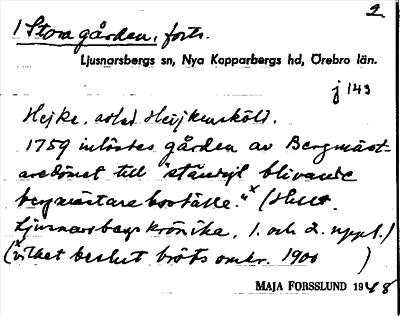 2
1 Stora gården, forts.
Ljusnarsbergs sn, Nya Kopparbergs hd, Örebro län.
j 143
Hejke, adlad Heijkensköld.
1759 inlöstes gården av Bergmäst-
aredömet till "ständigt blivande
bergmästareboställe."x (Hult
Ljusnarsbergs krönika, 1. och 2. uppl.)
(x vilket beslut bröts omkr. 1900 )
MAJA FORSSLUND 1948